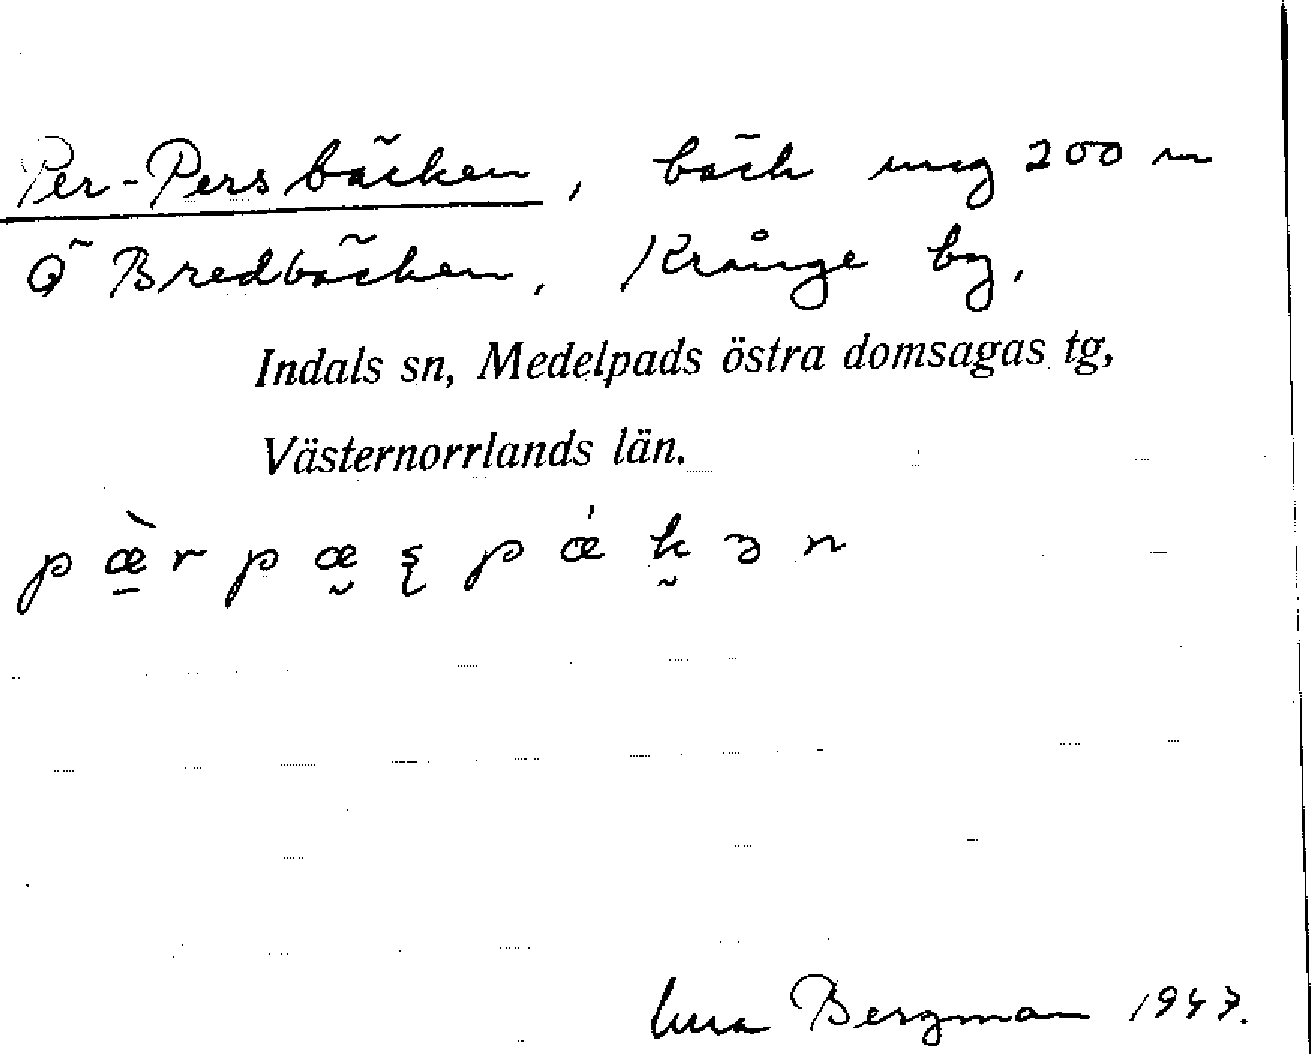 Per-Persbäcken, bäck ung 200 m
Ö Bredbäcken, Krånge by,
Indals sn, Medelpads östra domsagas tg,
Västernorrlands län.
Bergman 1943.